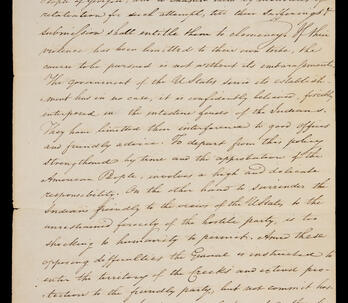 retaliation for such attempt, till their sufferings &
submission shall entitle them to clemency. If their
violence has been limited to their own tribe, the
course to be pursued is not without its embarrassments.
The government of the U States since its establish-
ment has in no case, it is confidently believed, forcibly
interposed in the intestine feuds of the Indians.
They have limited their interference to good offices
and friendly advice. To depart from this policy
strengthened by time and the approbation of the
American People, involves a high and delicate
responsibility. On the other hand to surrender the
Indians friendly to the views of the U States to the
unrestrained ferocity of the hostile party, is too
shocking to humanity to permit. Amid these
opposing difficulties the General is instructed to
enter the territory of the Creeks and extend pro-
tection to the friendly party, but not commit hos-